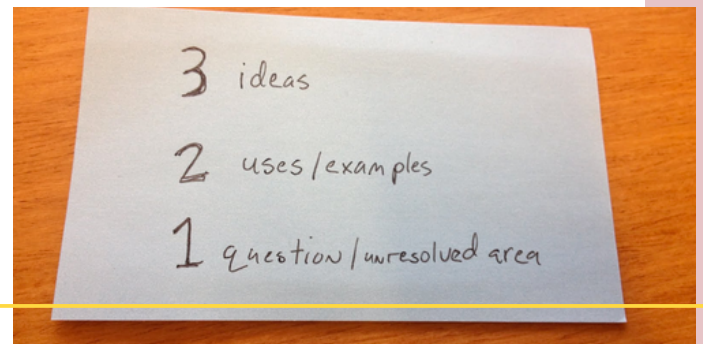 3 ideas
2 uses/examples
1 question/unresolved area